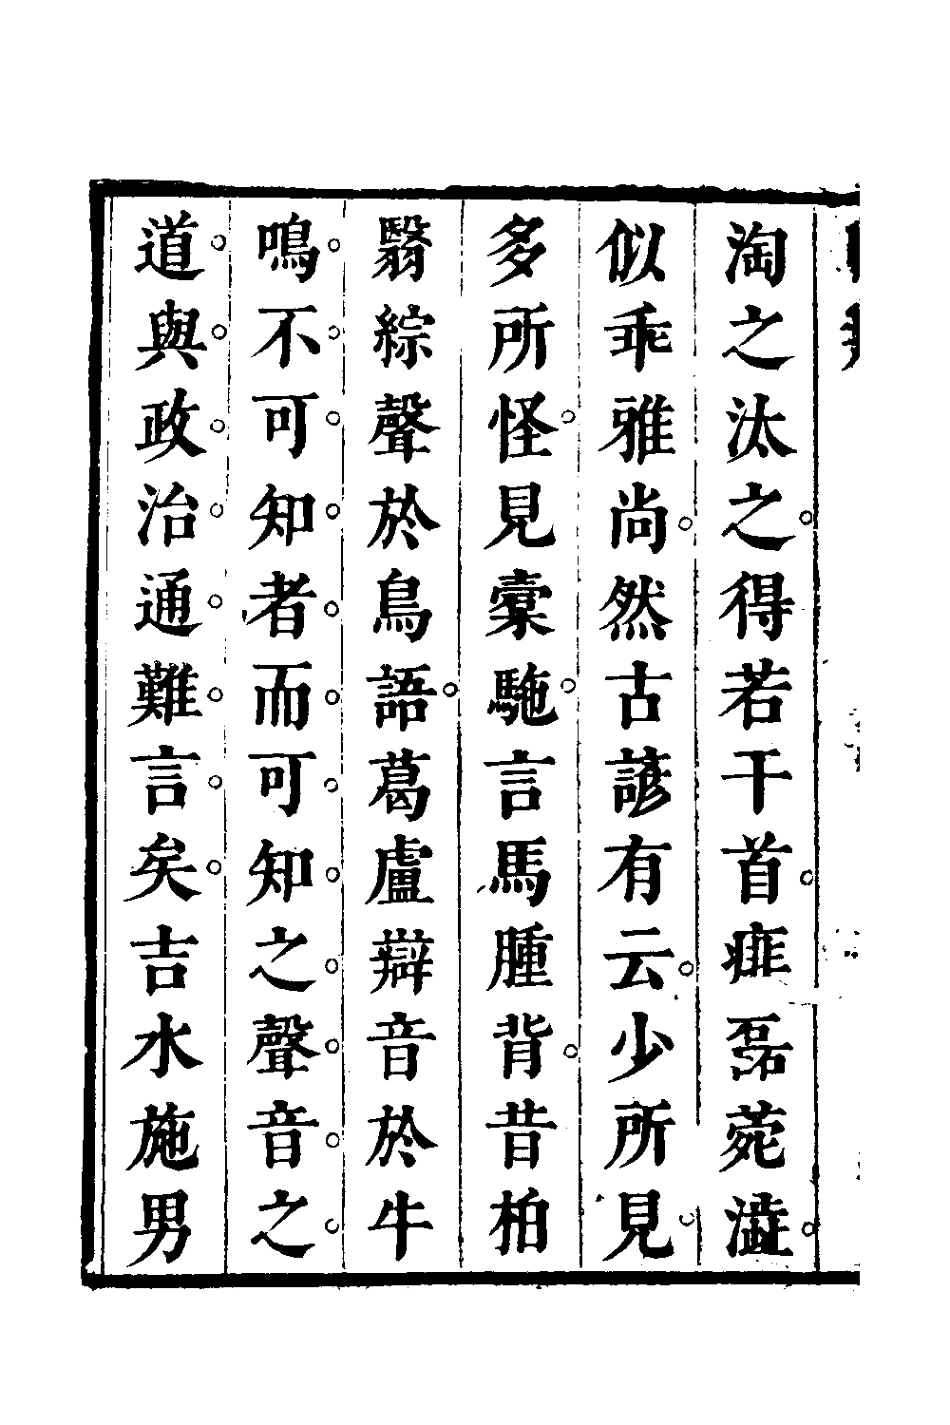 淘之汰之得若干首痱磊菀澁
似乖雅尚然古諺有云少所見
多所怪見橐駞言馬腫背昔柏
翳綜聲於鳥語葛盧辯音於牛
鳴不可知者而可知之聲音之
道與政治通難言矣吉水施男